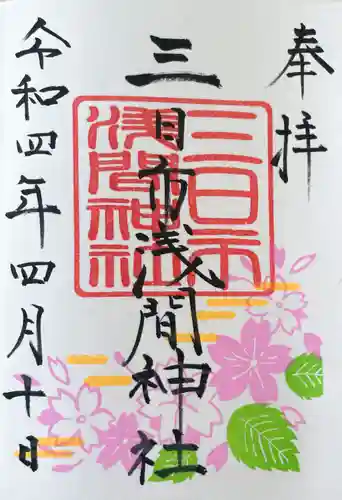 奉拝
三日市浅間神社
三日市浅間神社
令和四年四月十日